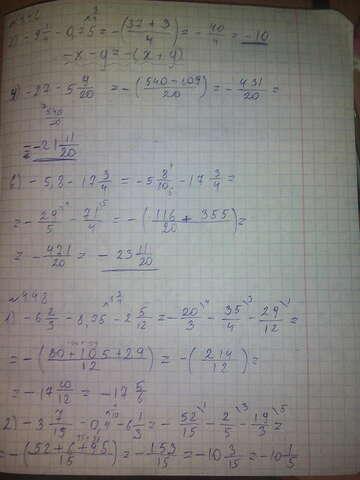 2) -9 1/4 - 0,75 = -(37 + 3 / 4) = - 40/4 = -10
-x - y = -(x + y)
4) -27 - 5 9/20 = -(540 - 109 / 20) = - 431/20 =
540/20
= -21 11/20
6) - 5,8 - 17 3/4 = -5 8/10 - 17 3/4 =
= - 29/5 - 71/4 = -(116 + 355 / 20) =
= - 471/20 = - 23 11/20
1) -6 2/3 - 8,75 - 2 5/12 = - 20/3 - 35/4 - 29/12 =
= -(80 + 105 + 29 / 12) = -(214 / 12) =
= -17 10/12 = -17 5/6
2) -3 7/15 - 0,4 - 6 1/3 = - 52/15 - 2/5 - 19/3 =
= -(52 + 6 + 95 / 15) = - 153/15 = -10 3/15 = -10 1/5